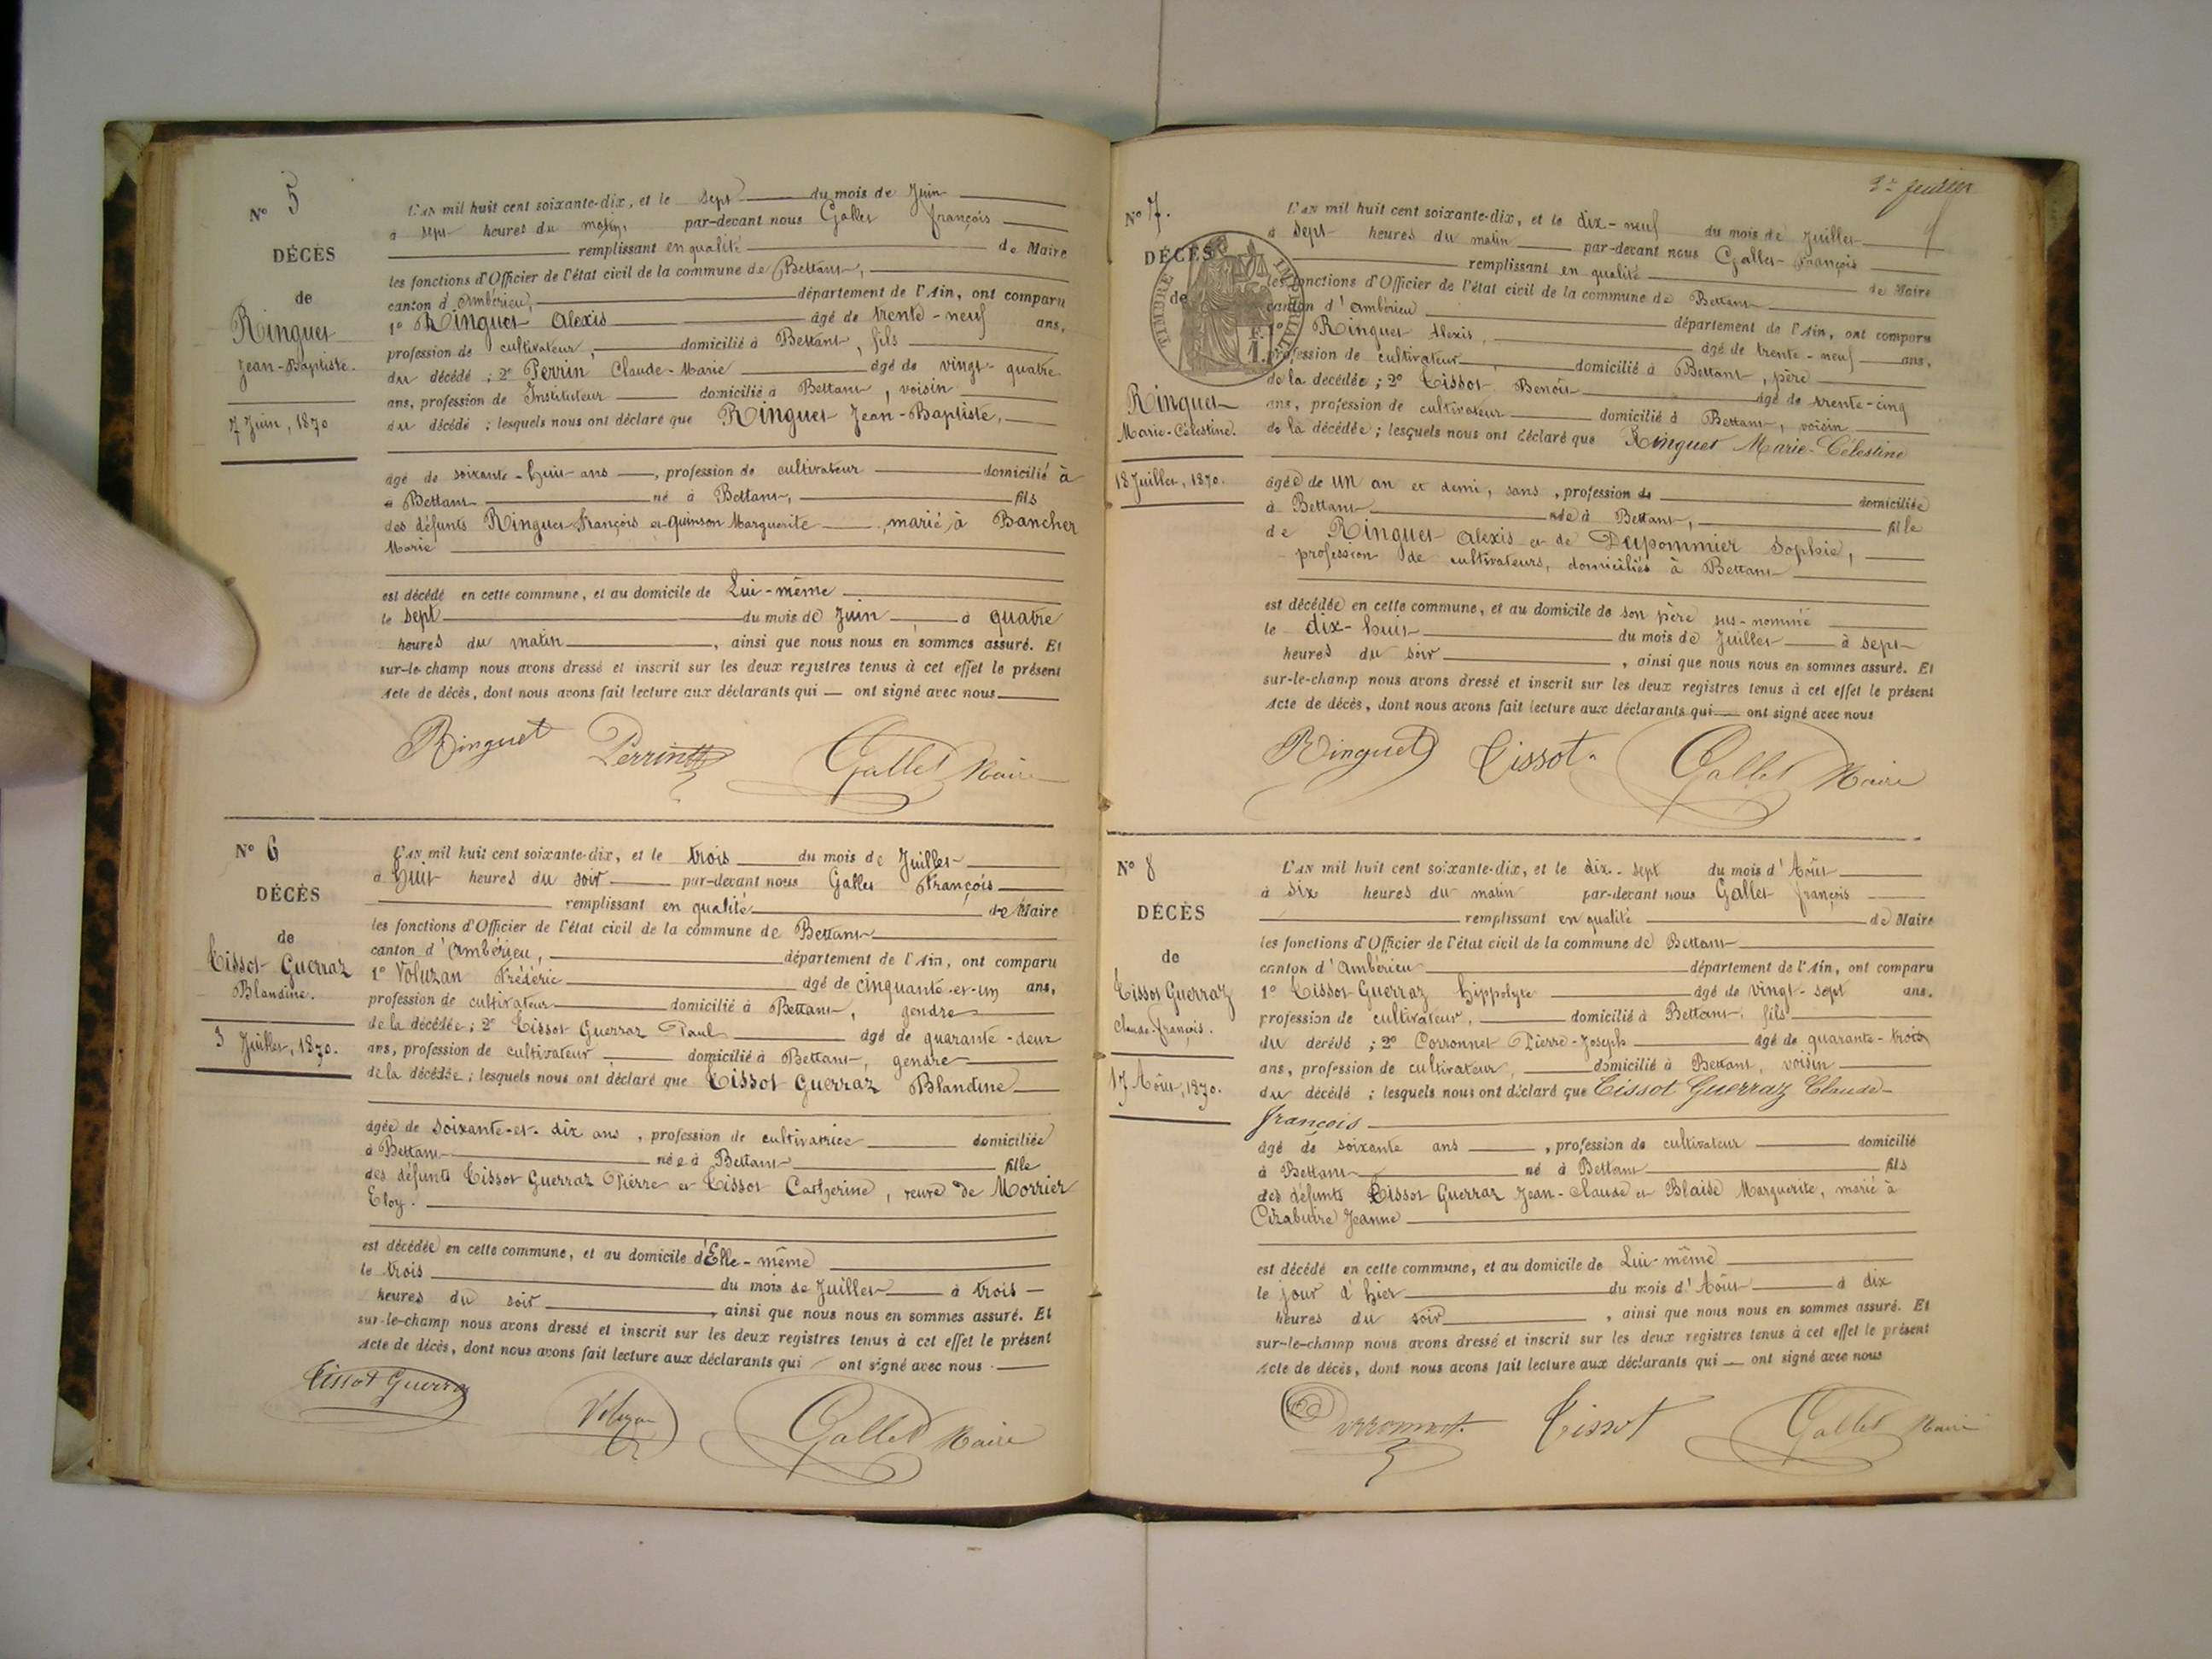 N° 5
DÉCÈS
de
Ringuet
Jean-Baptiste.
7 Juin, 1870
L'AN mil huit cent soixante-dix, et le sept du mois de Juin
à sept heures du matin, par-devant nous Gallet François
remplissant en qualité de Maire
les fonctions d'Officier de l'état civil de la commune de Bettant,
canton d'Ambérieu, département de l'Ain, ont comparu
1° Ringuet Alexis âgé de trente-neuf ans,
profession de cultivateur, domicilié à Bettant, fils
du décédé ; 2° Perrin Claude-Marie âgé de vingt-quatre
ans, profession de Instituteur domicilié à Bettant, voisin
du décédé ; lesquels nous ont déclaré que Ringuet Jean-Baptiste,
âgé de soixante-huit ans, profession de cultivateur domicilié à
à Bettant né à Bettant, fils
des défunts Ringuet François et Quinson Marguerite, marié à Bancher
Marie
est décédé en cette commune, et au domicile de Lui-même
le sept du mois de Juin, à quatre
heures du matin, ainsi que nous nous en sommes assuré. Et
sur-le-champ nous avons dressé et inscrit sur les deux registres tenus à cet effet le présent
Acte de décès, dont nous avons fait lecture aux déclarants qui ont signé avec nous
Ringuet Perrin Gallet Maire
N° 6
DÉCÈS
de
Tissot Guerraz
Blandine.
3 Juillet, 1870.
L'AN mil huit cent soixante-dix, et le trois du mois de Juillet
à huit heures du soir par-devant nous Gallet François
remplissant en qualité de Maire
les fonctions d'Officier de l'état civil de la commune de Bettant
canton d'Ambérieu, département de l'Ain, ont comparu
1° Voluzan Frédéric âgé de cinquante-et-un ans,
profession de cultivateur domicilié à Bettant, gendre
de la décédée ; 2° Tissot Guerraz Paul âgé de quarante-deux
ans, profession de cultivateur domicilié à Bettant, gendre
de la décédée ; lesquels nous ont déclaré que Tissot Guerraz Blandine
âgée de soixante-et-dix ans, profession de cultivatrice domiciliée
à Bettant née à Bettant fille
des défunts Tissot Guerraz Pierre et Tissot Catherine, veuve de Morrier
Eloy.
est décédée en cette commune, et au domicile d'Elle-même
le trois du mois de Juillet à trois
heures du soir, ainsi que nous nous en sommes assuré. Et
sur-le-champ nous avons dressé et inscrit sur les deux registres tenus à cet effet le présent
Acte de décès, dont nous avons fait lecture aux déclarants qui ont signé avec nous.
Tissot Guerraz Voluzan Gallet Maire
3e feuillet
N° 7.
DÉCÈS
de
TIMBRE IMPÉRIAL
Ringuet
Marie-Célestine.
18 Juillet, 1870.
L'AN mil huit cent soixante-dix, et le dix-neuf du mois de Juillet
à sept heures du matin par-devant nous Gallet François
remplissant en qualité de Maire
les fonctions d'Officier de l'état civil de la commune de Bettant
canton d'Ambérieu département de l'Ain, ont comparu
1° Ringuet Alexis, âgé de trente-neuf ans,
profession de cultivateur, domicilié à Bettant, père
de la décédée ; 2° Tissot Benoît âgé de trente-cinq
ans, profession de cultivateur domicilié à Bettant, voisin
de la décédée ; lesquels nous ont déclaré que Ringuet Marie-Célestine
âgée de un an et demi, sans, profession de domiciliée
à Bettant née à Bettant, fille
de Ringuet Alexis et de Dupommier Sophie,
profession de cultivateurs, domiciliés à Bettant
est décédée en cette commune, et au domicile de son père sus-nommé
le dix-huit du mois de Juillet à sept
heures du soir, ainsi que nous nous en sommes assuré. Et
sur-le-champ nous avons dressé et inscrit sur les deux registres tenus à cet effet le présent
Acte de décès, dont nous avons fait lecture aux déclarants qui ont signé avec nous
Ringuet Tissot Gallet Maire
N° 8
DÉCÈS
de
Tissot Guerraz
Claude-François.
17 Août, 1870.
L'AN mil huit cent soixante-dix, et le dix-sept du mois d'Août
à six heures du matin par-devant nous Gallet François
remplissant en qualité de Maire
les fonctions d'Officier de l'état civil de la commune de Bettant
canton d'Ambérieu département de l'Ain, ont comparu
1° Tissot Guerraz Hippolyte âgé de vingt-sept ans.
profession de cultivateur, domicilié à Bettant, fils
du décédé ; 2° Corronnet Pierre-Joseph âgé de quarante-trois
ans, profession de cultivateur, domicilié à Bettant, voisin
du décédé ; lesquels nous ont déclaré que Tissot Guerraz Claude-
François
âgé de soixante ans, profession de cultivateur domicilié
à Bettant né à Bettant fils
des défunts Tissot Guerraz Jean-Claude et Blaise Marguerite, marié à
Cizabuire Jeanne
est décédé en cette commune, et au domicile de Lui-même
le jour d'hier du mois d'Août à dix
heures du soir, ainsi que nous nous en sommes assuré. Et
sur-le-champ nous avons dressé et inscrit sur les deux registres tenus à cet effet le présent
Acte de décès, dont nous avons fait lecture aux déclarants qui ont signé avec nous
Corronnet Tissot Gallet Maire